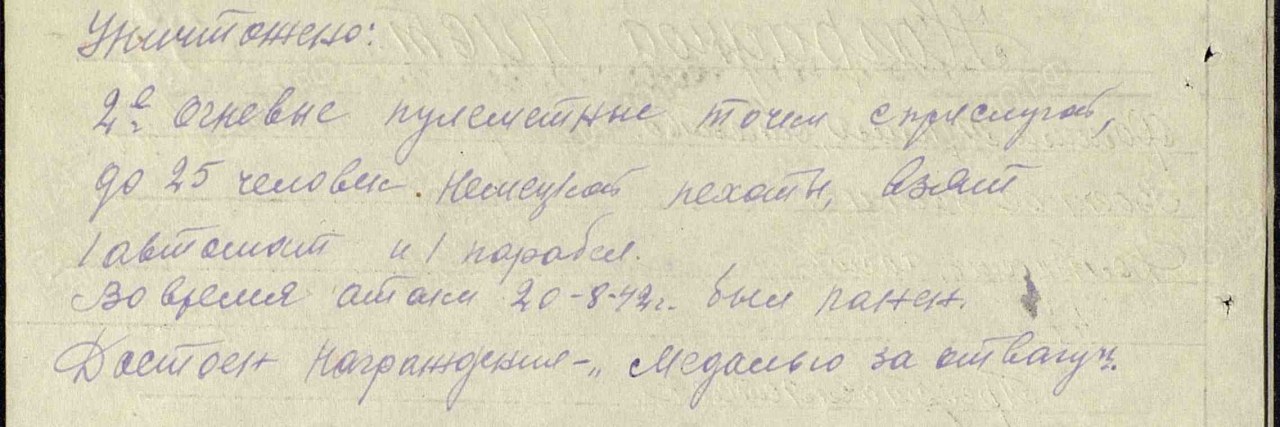 Уничтожено:
2е огневые пулеметные точки с прислугой,
до 25 человек немецкой пехоты, взят
1 автомат и 1 парабел.
Во время атаки 20-8-42г. был ранен.
Достоен награждения - „Медалью за отвагу".